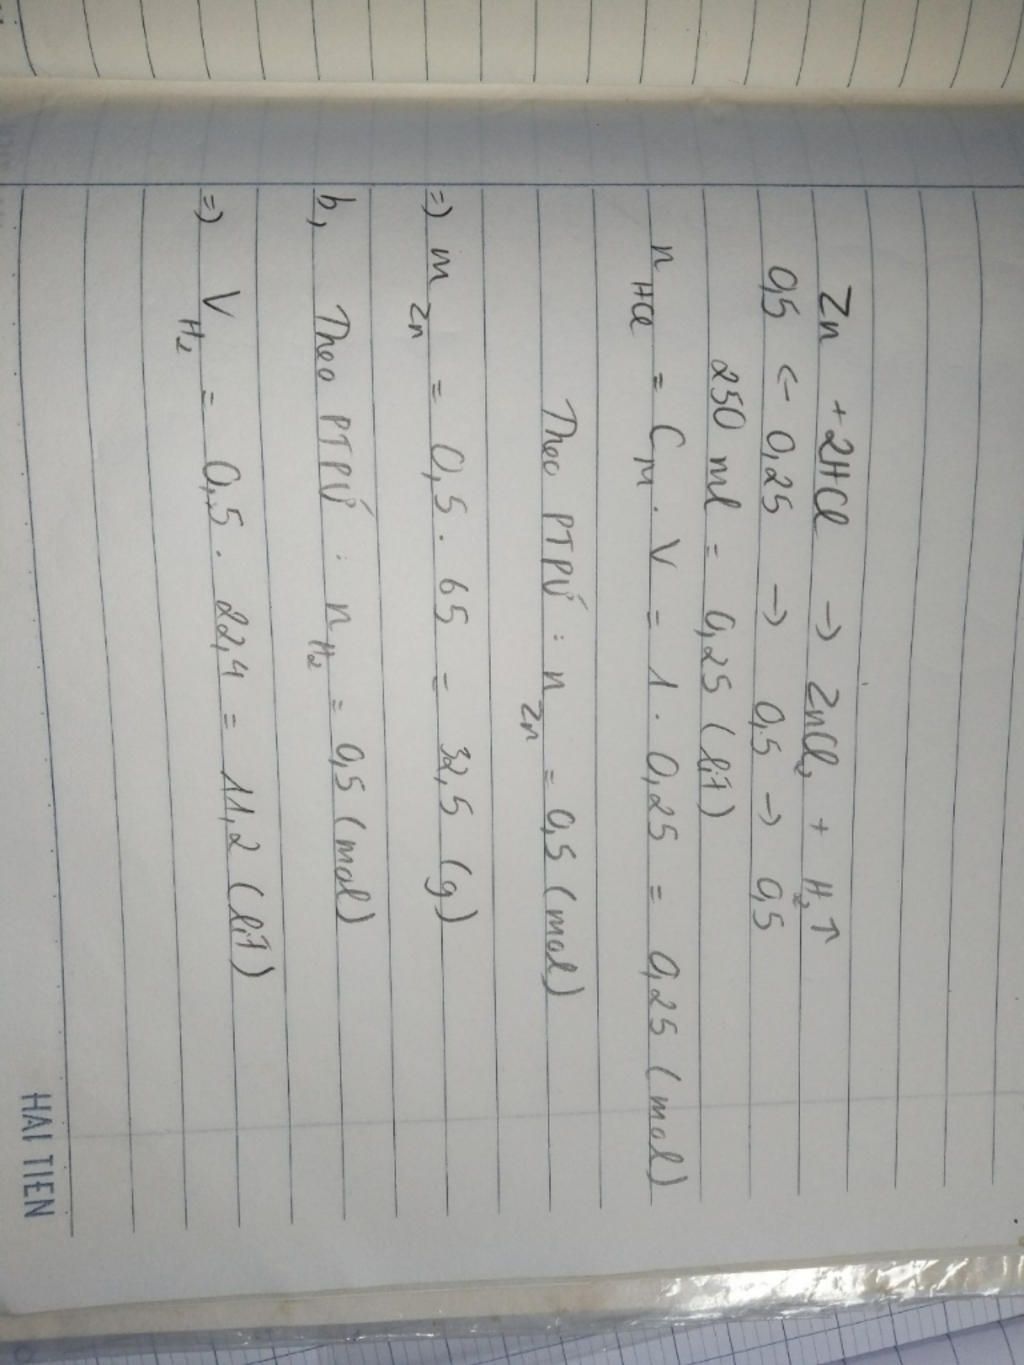 Zn + 2HCl → ZnCl₂ + H₂↑
0,5 ← 0,25 → 0,5 → 0,5
250 ml = 0,25 (lít)
nHCl = CM . V = 1 . 0,25 = 0,25 (mol)
Theo PTPƯ : nZn = 0,5 (mol)
=) mZn = 0,5 . 65 = 32,5 (g)
b, Theo PTPƯ : nH₂ = 0,5 (mol)
=) VH₂ = 0,5 . 22,4 = 11,2 (lít)
HAI TIEN